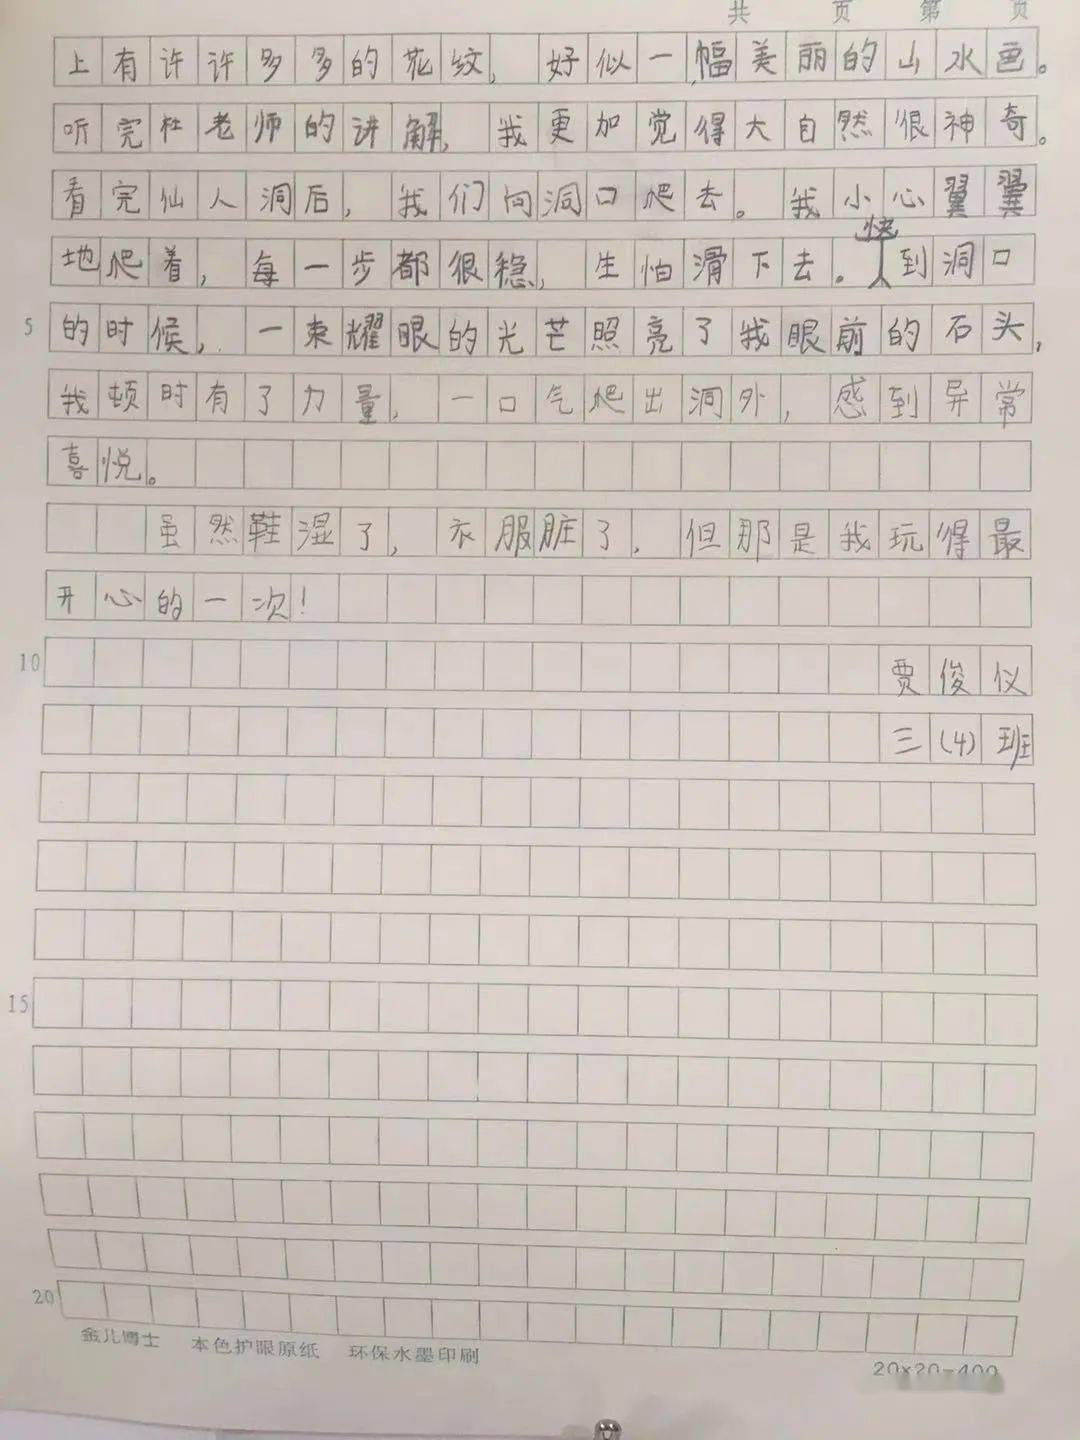 共 页 第 页
上有许许多多的花纹，好似一幅美丽的山水画。
听完杜老师的讲解，我更加觉得大自然很神奇。
看完仙人洞后，我们向洞口爬去。我小心翼翼
地爬着，每一步都很稳，生怕滑下去。快到洞口
5 的时候，一束耀眼的光芒照亮了我眼前的石头，
我顿时有了力量，一口气爬出洞外，感到异常
喜悦。
虽然鞋湿了，衣服脏了，但那是我玩得最
开心的一次！
10 贾俊仪
三（4）班
15
20
金儿博士 本色护眼原纸 环保水墨印刷 20×20=400